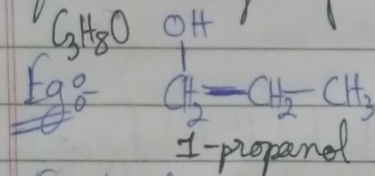 C₃H₈O OH
Eg:- CH₂-CH₂-CH₃
1-propanol